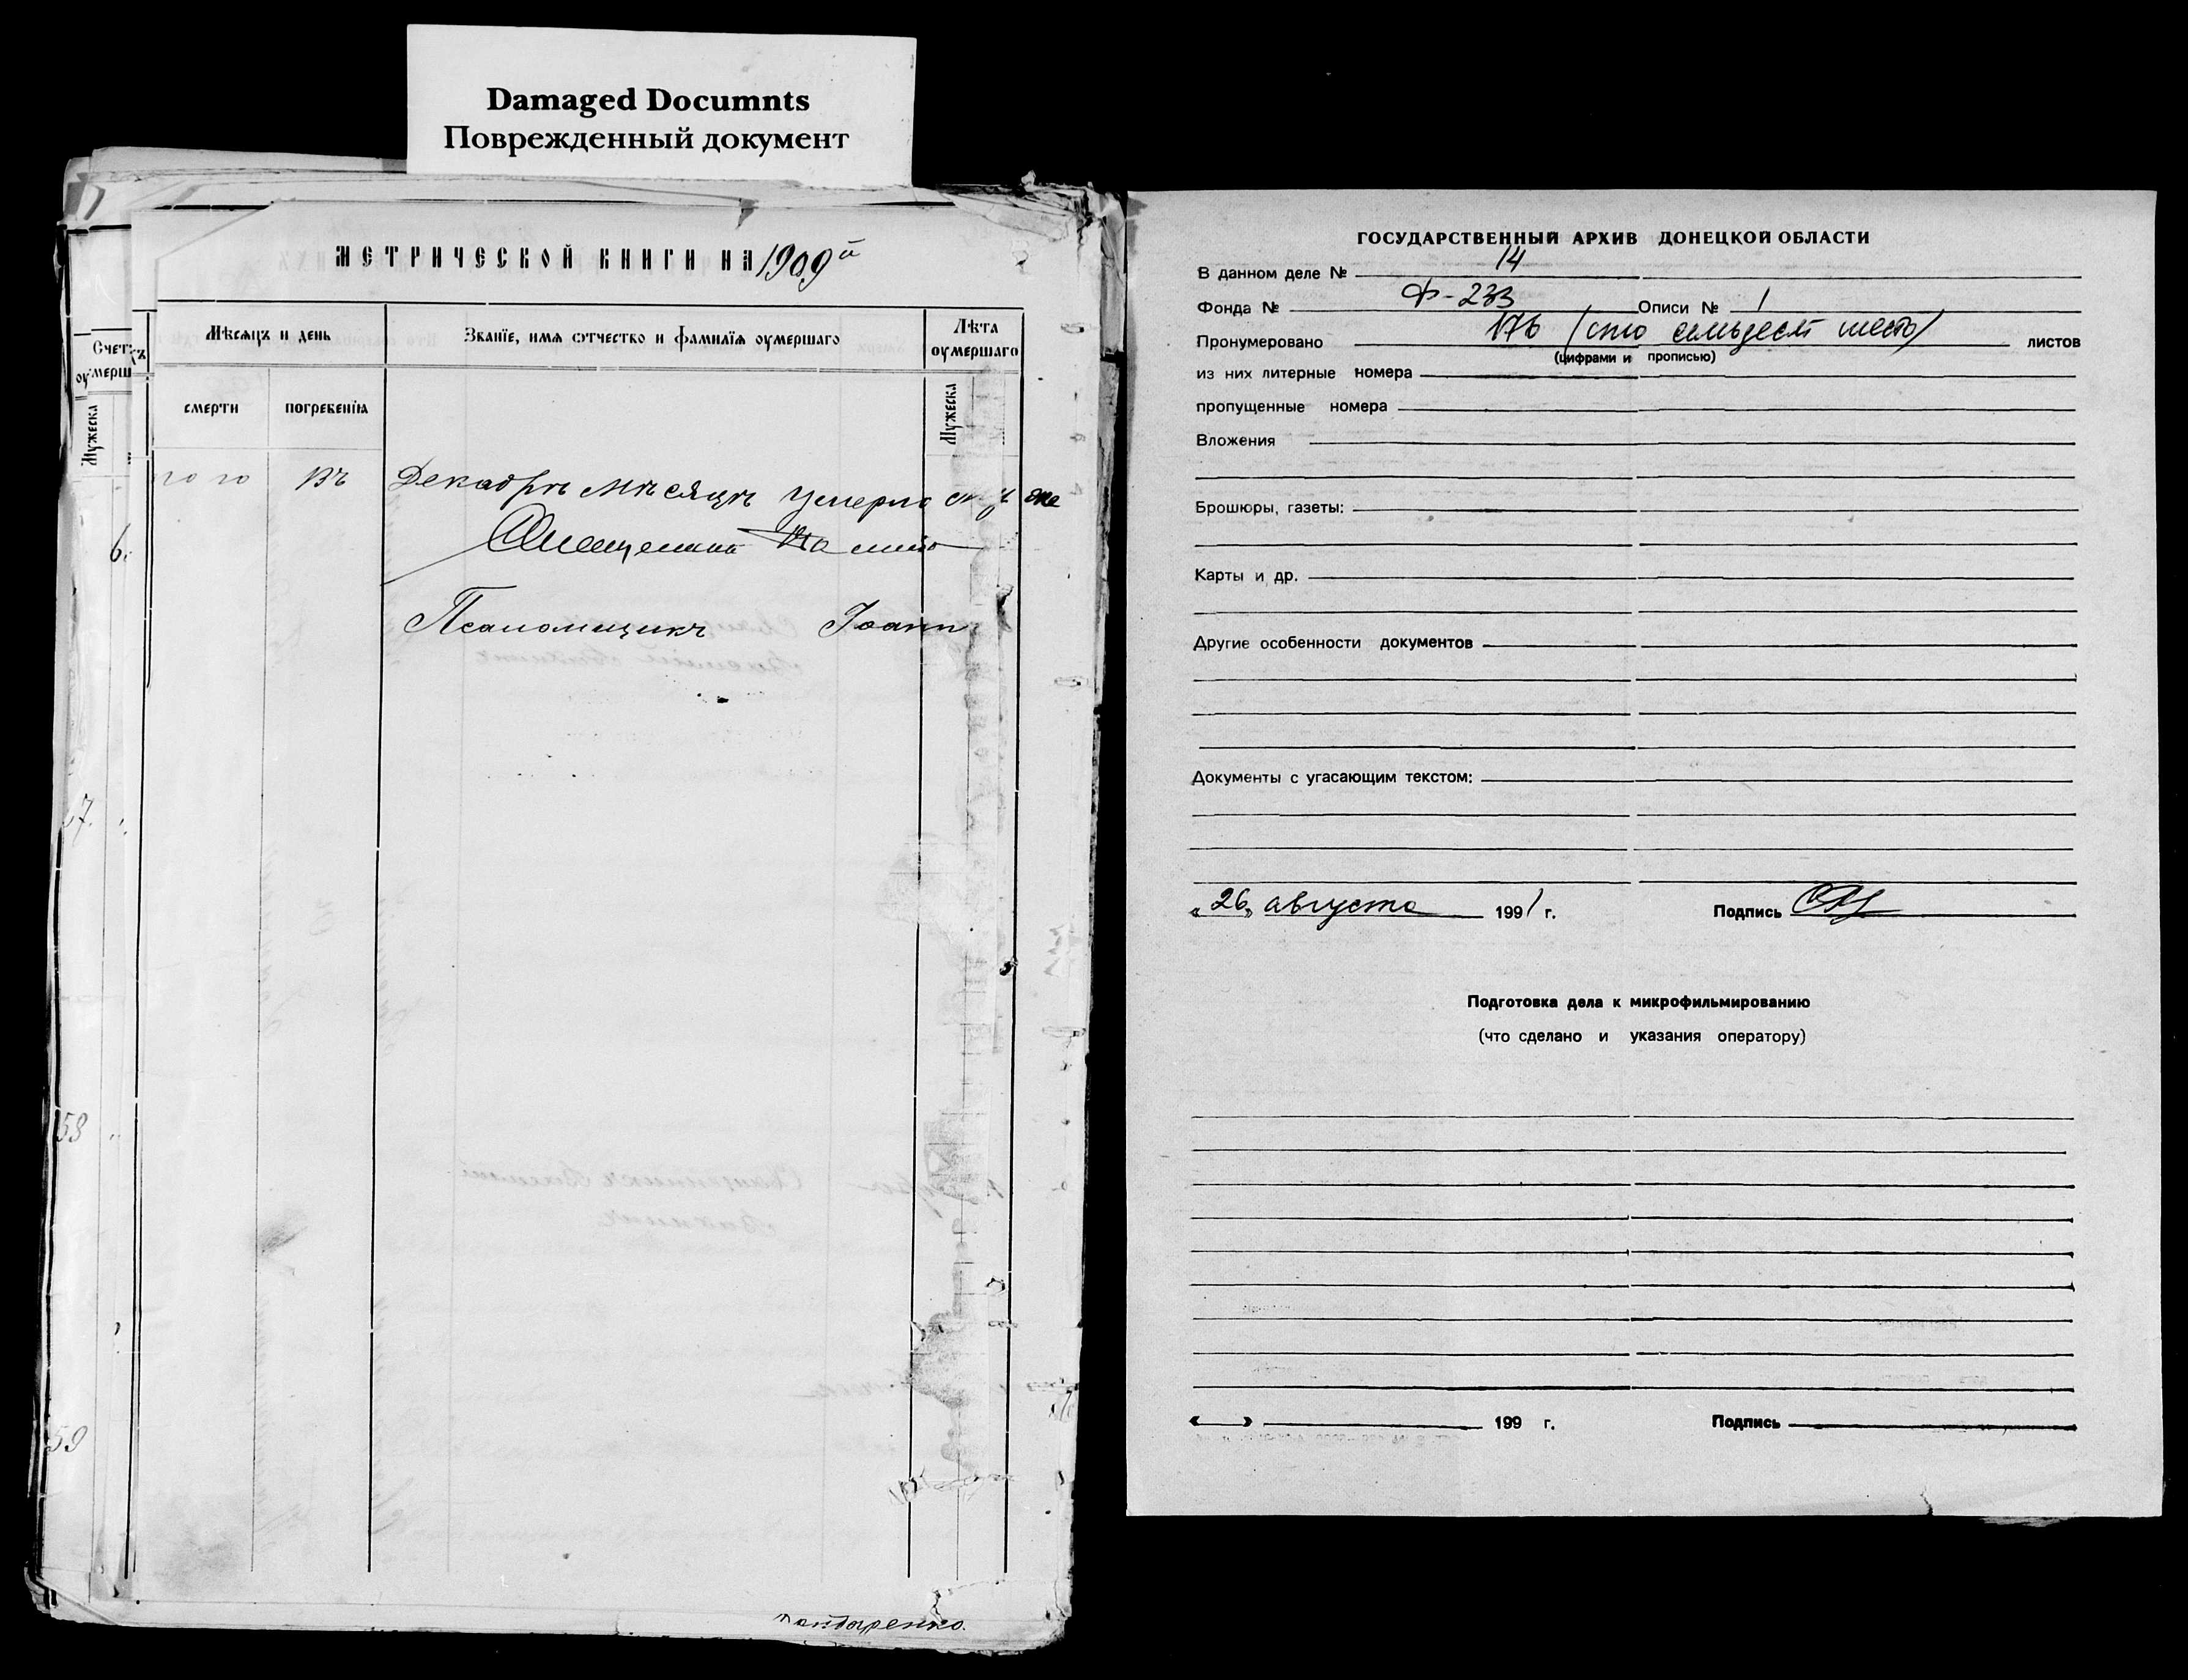 Damaged Documnts
Поврежденный документ
МЕТРИЧЕСКОЙ КНИГИ НА 1909й
Счетъ
оумерш
Мужеска
Мѣсяцъ и день
Званіе, имя отчество и фамилія оумершаго
Лѣта оумершаго
смерти
погребенія
Мужеска
того въ Декабрѣ мѣсяцѣ умерло
Священникъ
Псаломщикъ Іоанн
6.
57.
58
59
ГОСУДАРСТВЕННЫЙ АРХИВ ДОНЕЦКОЙ ОБЛАСТИ
В данном деле № 14
Фонда № Ф-233 Описи № 1
Пронумеровано 176 (сто семьдесят шесть) листов
(цифрами и прописью)
из них литерные номера
пропущенные номера
Вложения
Брошюры, газеты:
Карты и др.
Другие особенности документов
Документы с угасающим текстом:
«26» августа 1991 г. Подпись
Подготовка дела к микрофильмированию
(что сделано и указания оператору)
« » 199 г. Подпись